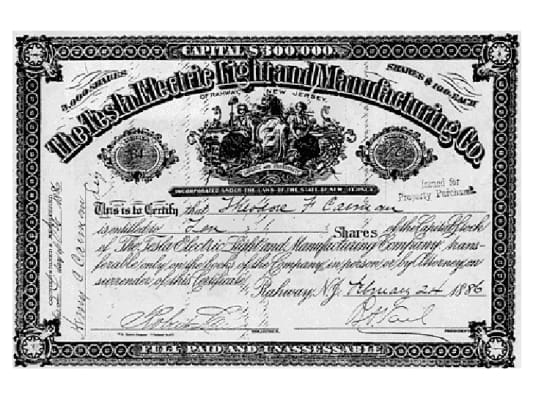 CAPITAL $300,000.
3,000 SHARES
SHARES $100 EACH
The Tesla Electric Light and Manufacturing Co.
OF RAHWAY, NEW JERSEY.
INCORPORATED UNDER THE LAWS OF THE STATE OF NEW JERSEY.
Issued for
Property Purchased
This is to Certify that Theodore F
is entitled to Ten Shares of the Capital Stock
of The Tesla Electric Light and Manufacturing Company, trans-
ferable only on the books of the Company in person or by Attorney on
surrender of this Certificate.
Rahway, N.J. February 24 1886
PRESIDENT
FULL PAID AND UNASSESSABLE